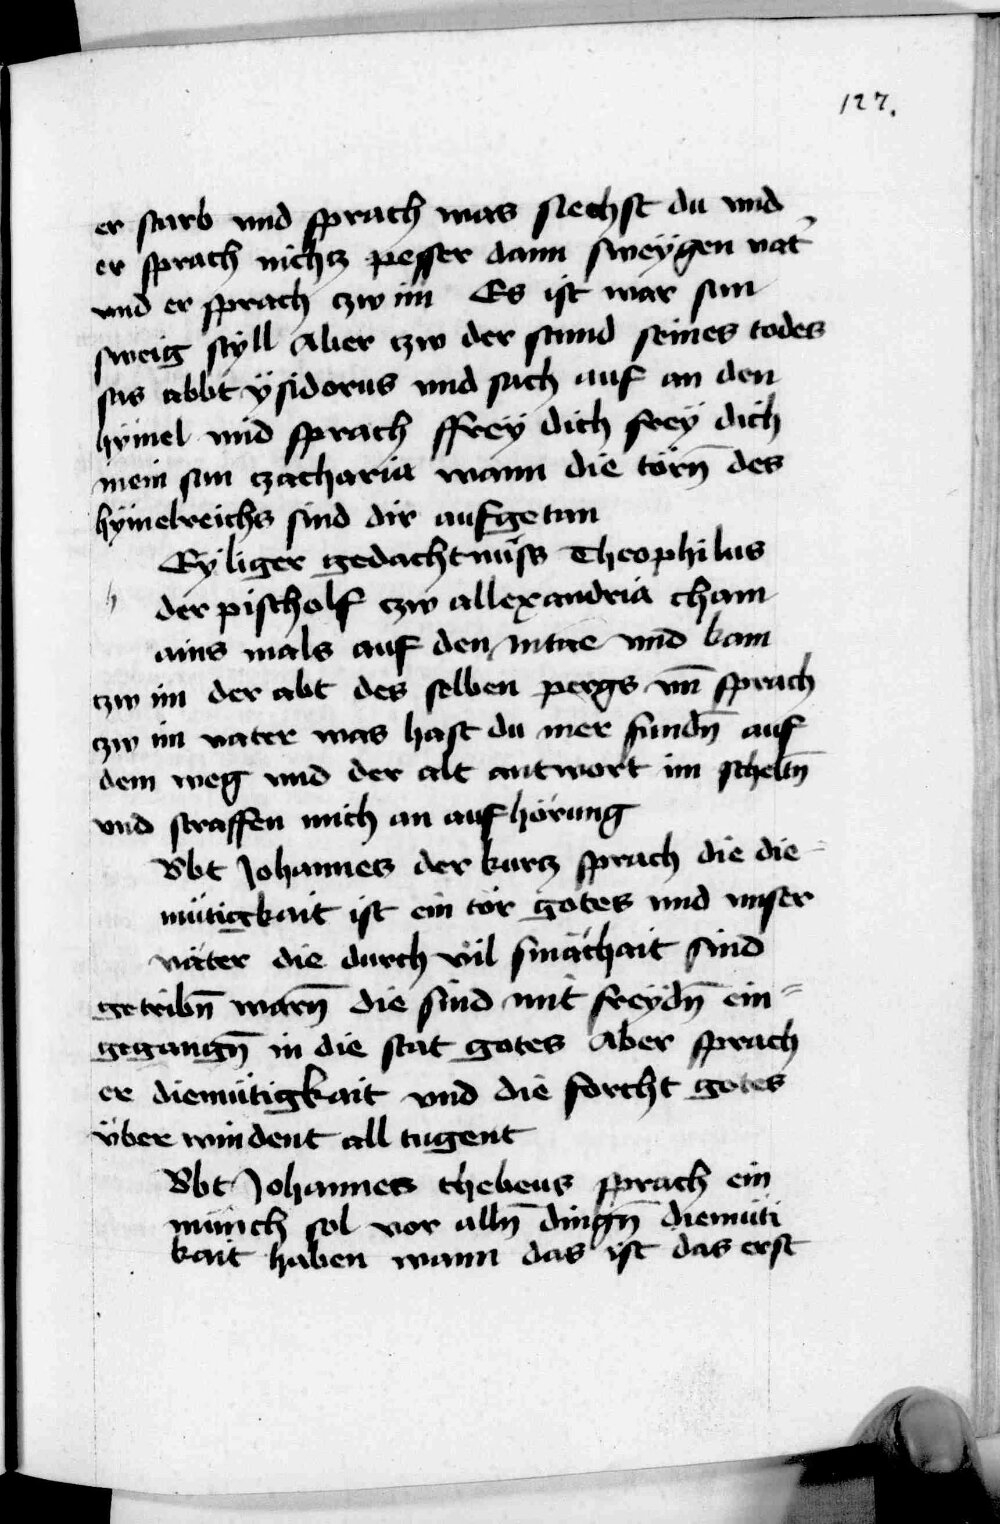 127.
er starb vnd sprach was siechst du vnd
er sprach nichtz pesser dann sweÿgen vat̕
vnd er sprach czw im Es ist war sun
sweig styll Aber czw der stund seines todes
sas abbt ÿsidorus vnd sach auf an den
hÿmel vnd sprach ffreÿ dich freÿ dich
mein sun czacharia wann die törn̄ des
hÿmelreichs sind dir aufgetan
Eyliger gedachtnüss Theophilus
h
der pischolf czw allexandria cham
ains mals auf den nitrie vnd kam
czw im der abt des selben pergs vn̄ sprach
czw im vater was hast du mer fundn̄ auf
dem weg vnd der alt antwort im scheltn̄
vnd straffen mich an aufhörung
Abt Johannes der kurcz sprach die die-
mütigkait ist ein tör gotes vnd vnser
väter die durch vil smächait sind
getribn̄ warn̄ die sind mit freÿdn̄ ein=
gegangn̄ in die stat gotes Aber sprach
er diemütigkait vnd die forcht gotes
über windent all tugent
Abt Johannes thebeus sprach ein
münch sol vor alln̄ dingn̄ diemüti
kait haben wann das ist das erst